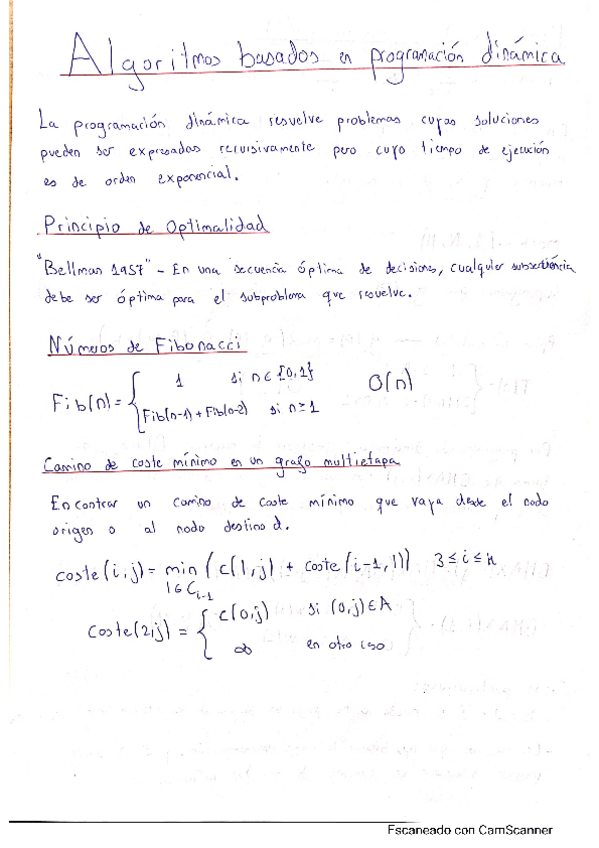 Algoritmos basados en programación dinámica
La programación dinámica resuelve problemas cuyas soluciones
pueden ser expresadas recursivamente pero cuyo tiempo de ejecución
es de orden exponencial.
Principio de Optimalidad
"Bellman 1957" - En una secuencia óptima de decisiones, cualquier subsecuencia
debe ser óptima para el subproblema que resuelve.
Números de Fibonacci
Fib(n) = { 1 si n ∈ {0,1} O(n)
Fib(n-1) + Fib(n-2) si n ≥ 1
Camino de coste mínimo en un grafo multietapa
Encontrar un camino de coste mínimo que vaya desde el nodo
origen o al nodo destino d.
coste(i,j) = min (c(l,j) + coste(i-1,l)) 3 ≤ i ≤ k
l ∈ C i-1
coste(2,j) = { c(o,j) si (o,j) ∈ A
∞ en otro caso
Escaneado con CamScanner